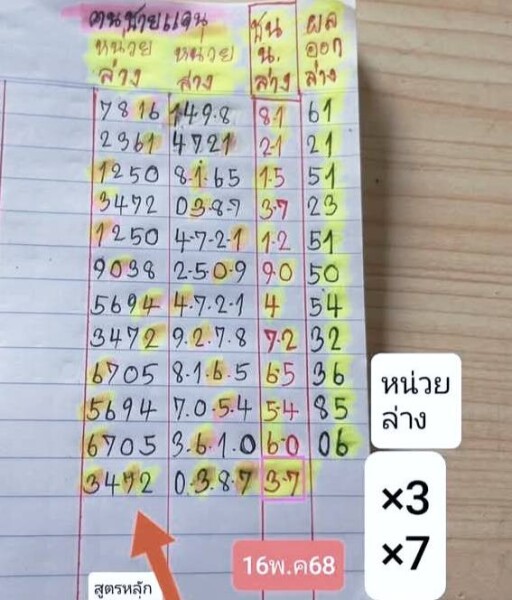 คนชายแดน
หน่วย หน่วย ชน ผล
ล่าง ล่าง น. ออก
ล่าง ล่าง
7816 149.8 8.1 61
2361 4721 2.1 21
1250 8.1.65 1.5 51
3472 03.8.7 3.7 23
1250 4.7.2.1 1.2 51
9038 2.5.0.9 9.0 50
5694 4.7.2.1 4 54
3472 9.2.7.8 7.2 32
6705 8.1.6.5 6.5 36
5694 7.0.5.4 5.4 85
6705 3.6.1.0 6.0 06
3472 0.3.8.7 3.7
หน่วย
ล่าง
×3
×7
16พ.ค68
สูตรหลัก